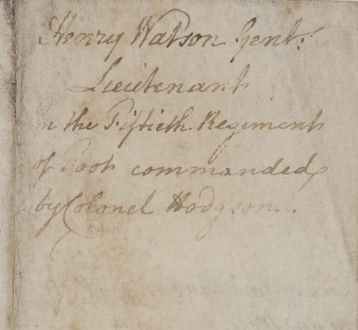 Henry Watson Gent:
Lieutenant
In the Fiftieth Regiment
of Foot commanded
by Colonel Hodgson.